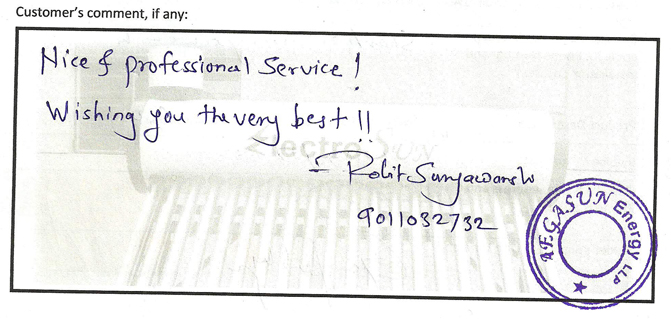 Customer's comment, if any:
Nice & professional Service !
Wishing you the very best !!
Electro Sun
- Rohit Suryawanshi
9011032732
AEGASUN Energy LLP